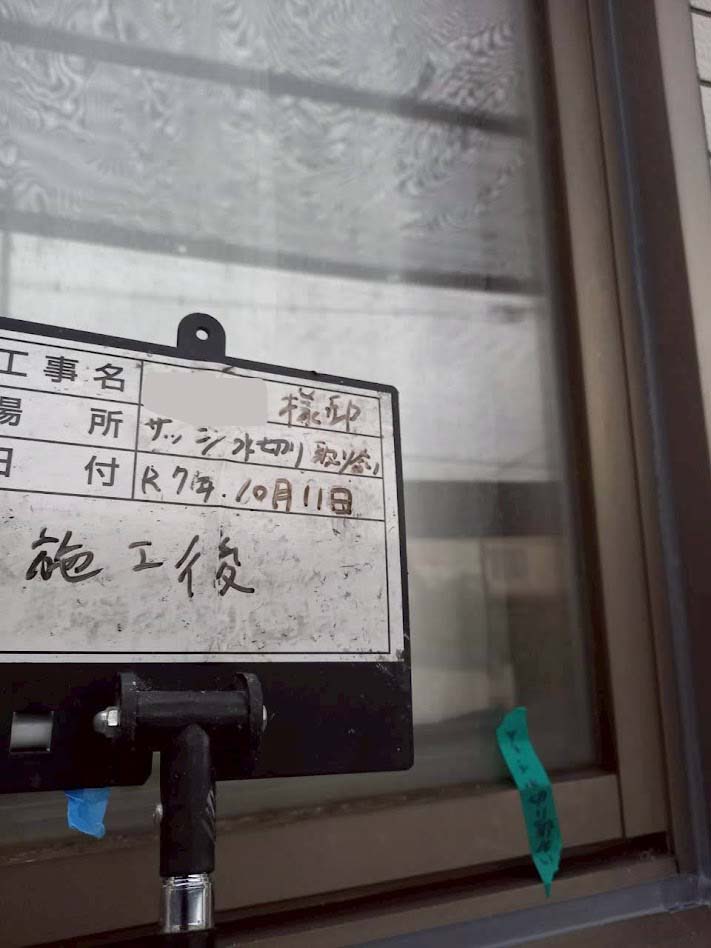 工事名 様邸
場所 サッシ水切り取り合い
日付 R7年.10月11日
施工後